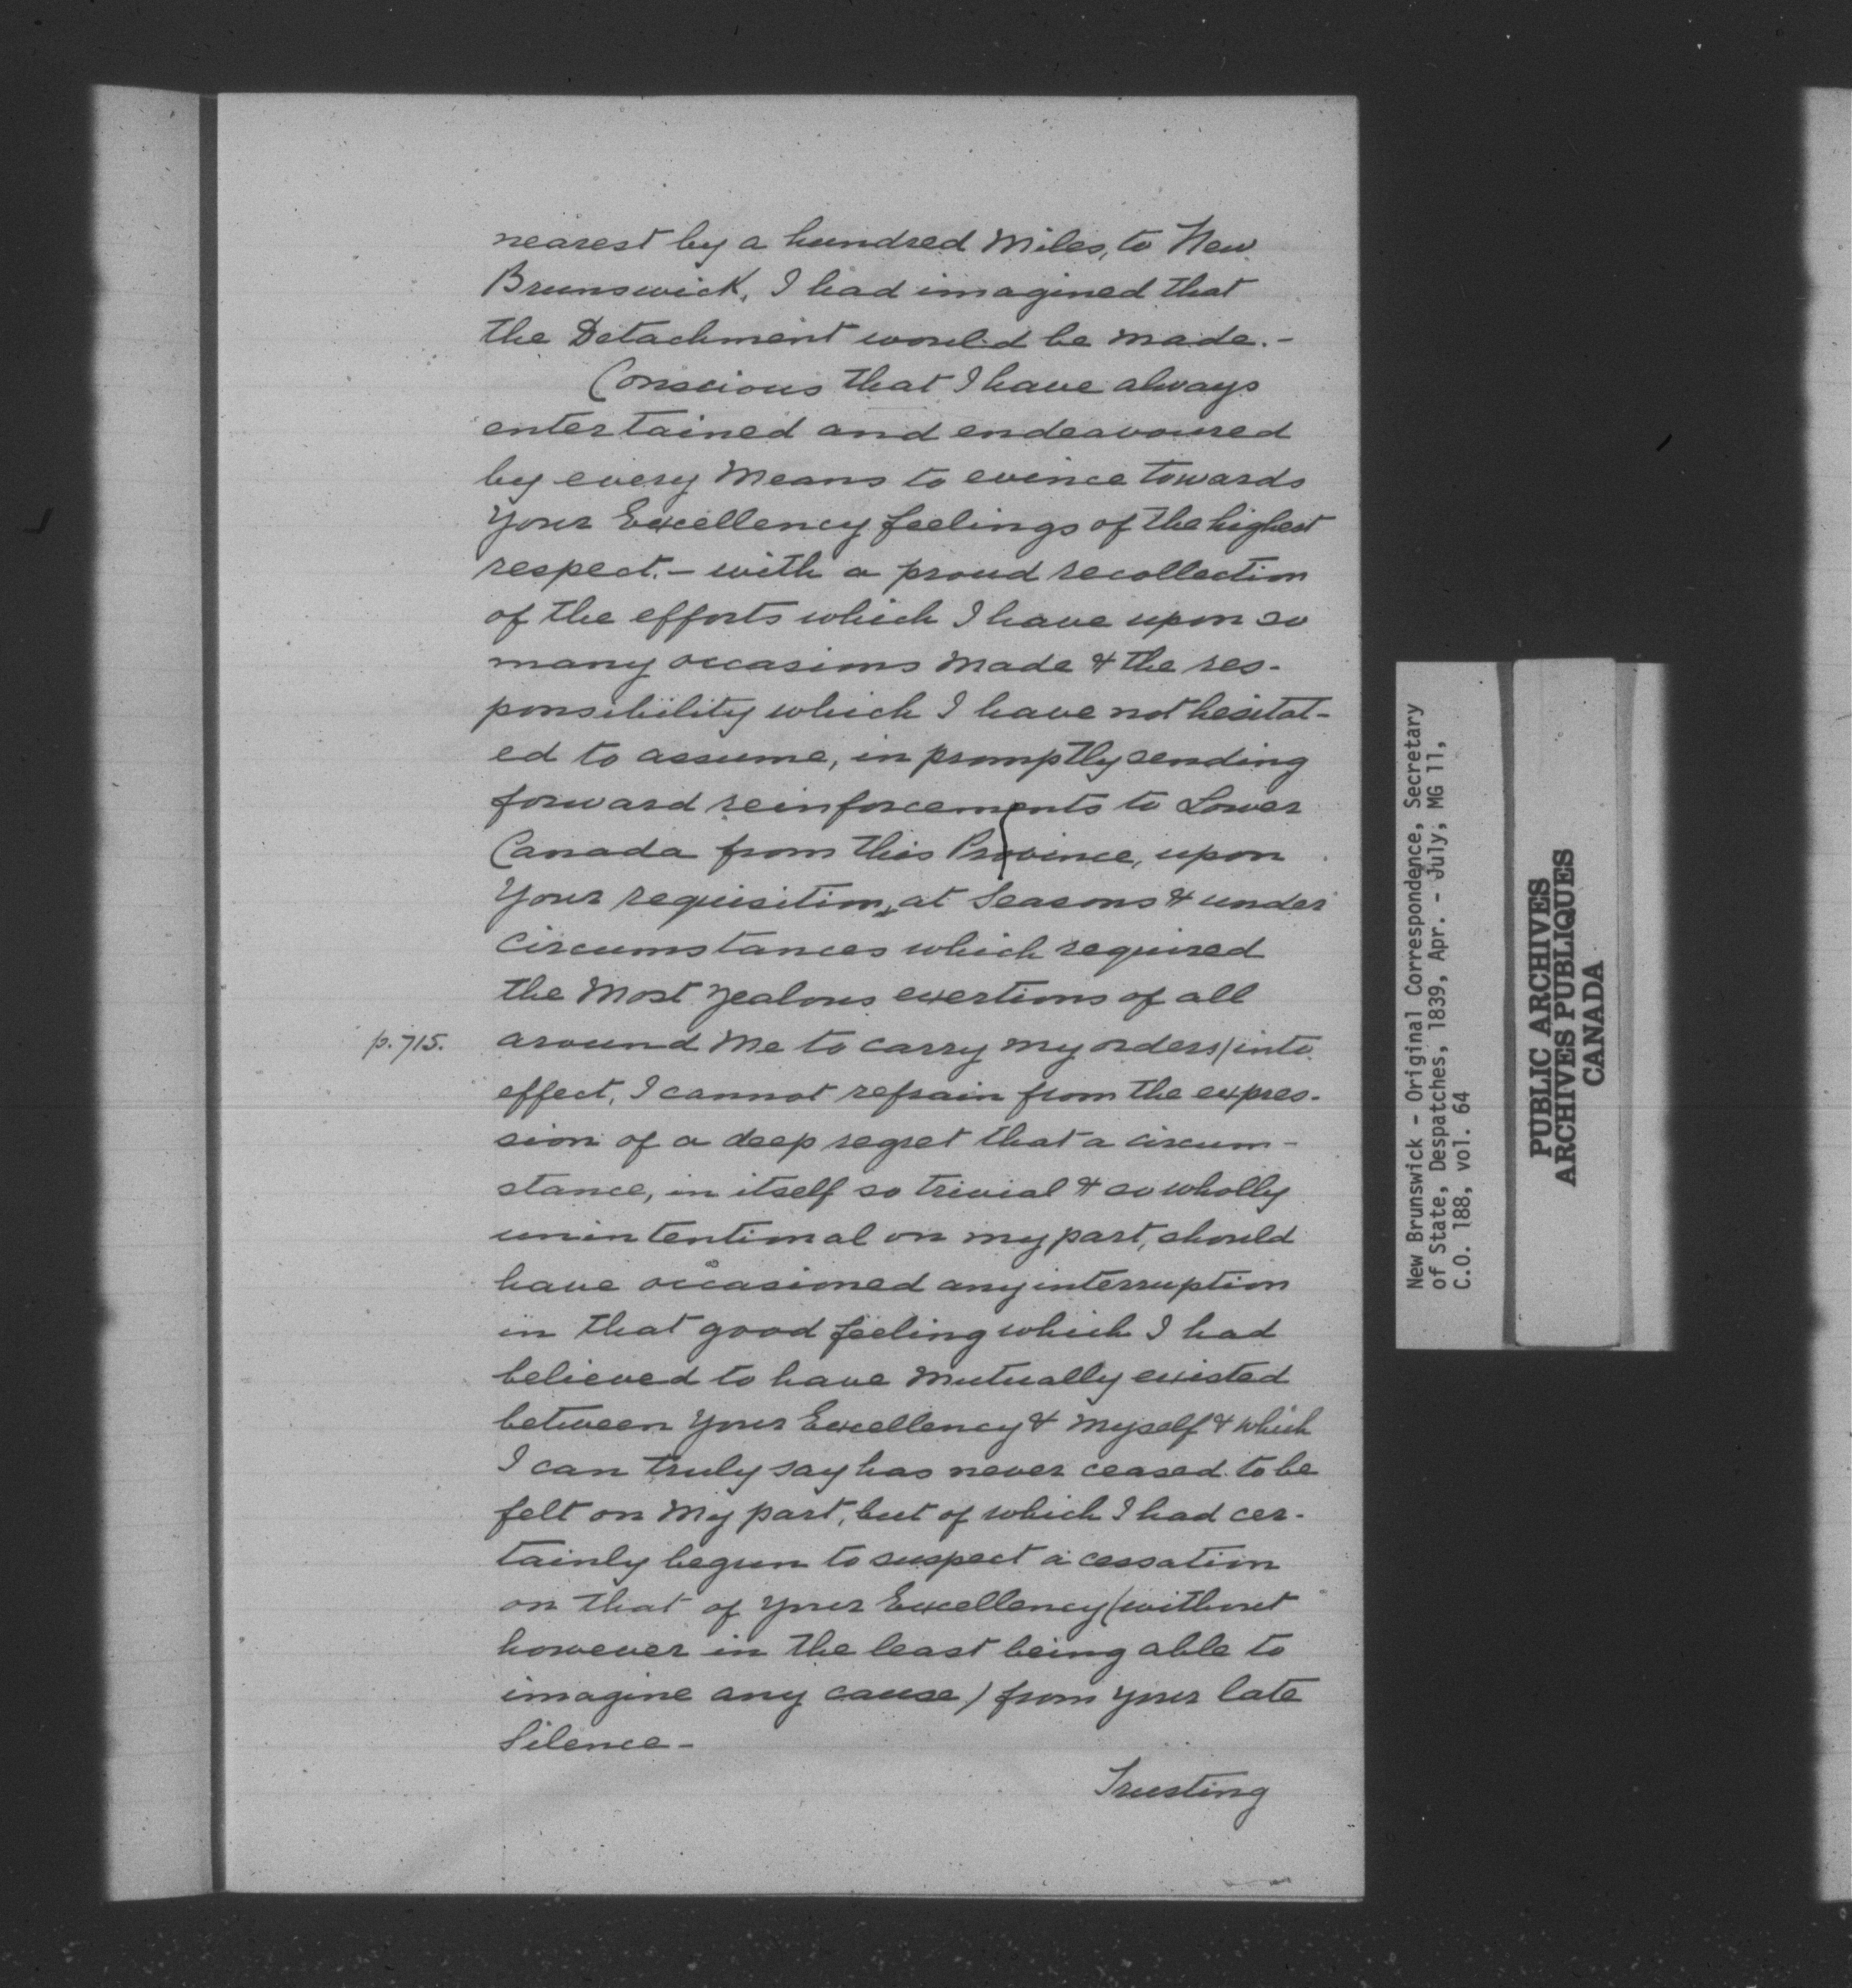 nearest by a hundred Miles, to New
Brunswick, I had imagined that
the Detachment would be made. -
Conscious that I have always
entertained and endeavoured
by every Means to evince towards
Your Excellency feelings of the highest
respect. - with a proud recollection
of the efforts which I have upon so
many occasions Made & the res-
ponsibility which I have not hesitat-
ed to assume, in promptly sending
forward reinforcements to Lower
Canada from this Province, upon
Your requisition, at Seasons & under
Circumstances which required
the Most Zealous exertions of all
p. 715. around Me to carry my orders/into
effect, I cannot refrain from the expres-
sion of a deep regret that a circum-
stance, in itself so trivial & so wholly
unintentional on my part, should
have occasioned any interruption
in that good feeling which I had
believed to have Mutually existed
between Your Excellency & Myself & which
I can truly say has never ceased to be
felt on My part, but of which I had cer-
tainly begun to suspect a cessation
on that of Your Excellency (without
however in the least being able to
imagine any cause) from your late
Silence -
Trusting
New Brunswick - Original Correspondence, Secretary
of State, Despatches, 1839, Apr. - July, MG 11,
C.O. 188, vol. 64
PUBLIC ARCHIVES
ARCHIVES PUBLIQUES
CANADA